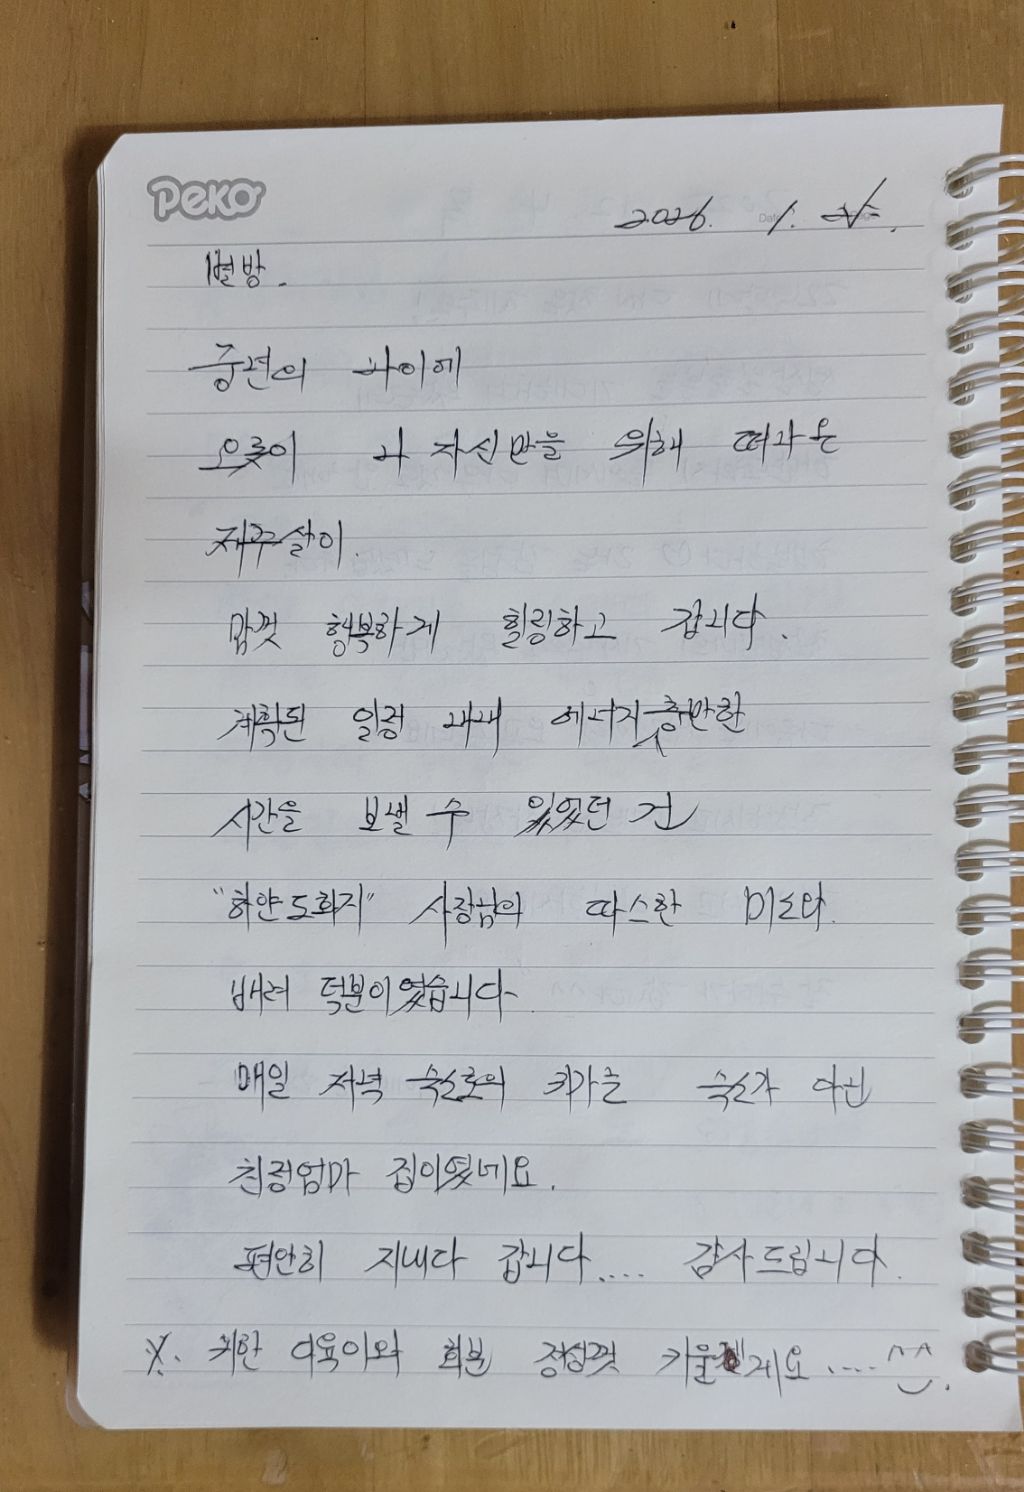 Peko
2026. 1.
Date
별방.
중년의 나이에
오롯이 나 자신만을 위해 떠나온
제주살이.
맘껏 행복하게 힐링하고 갑니다.
계획된 일정 내내 에너지 충만한
시간을 보낼 수 있었던 건
"하얀도화지" 사장님의 따스한 미소와
배려 덕분이였습니다.
매일 저녁 숙소로의 귀가는 숙소가 아닌
친정엄마 집이였네요.
편안히 지내다 갑니다.... 감사드립니다.
※. 귀한 다육이와 화분 정성껏 키울게요.... ^^